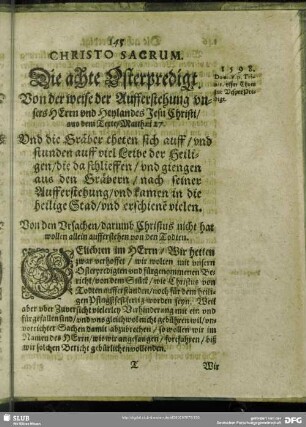 145
CHRISTO SACRUM.
Die achte Osterpredigt.
Von der weise der Aufferstehung vn-
sers HErrn vnd Heylandes Jesu Christi/
aus dem Texte/Matthæi 27.
1598.
Vnd die Gräber theten sich auff/vnd
stunden auff viel Leibe der Heili-
gen/die da schlieffen/vnd giengen
aus den Gräbern/nach seiner
Aufferstehung/vnd kamen in die
heilige Stad/vnd erschienē vielen.
Von den Vrsachen/darumb Christus nicht hat
wollen allein aufferstehen von den Todten.
GEliebten im HErrn/Wir hetten
zwar verhoffet/wir wolten mit vnsern
Osterpredigten vnd fürgenommenen Be-
richt/von dem Stück/wie Christus von
Todten aufferstanden/noch für dem heili-
gen Pfingstfest fertig worden seyn. Weil
aber vber Zuversicht vielerley Verhinderung mit ein vnd
für gefallen sind/vnd vns gleichwol nicht gebühren wil/vn-
verrichter Sachen damit abzubrechen/so wollen wir im
Namen des HErrn/wie wir angefangen/fortfahren/biß
wir solchen Bericht gebürlichen vollenden.
T Wir
SLUB